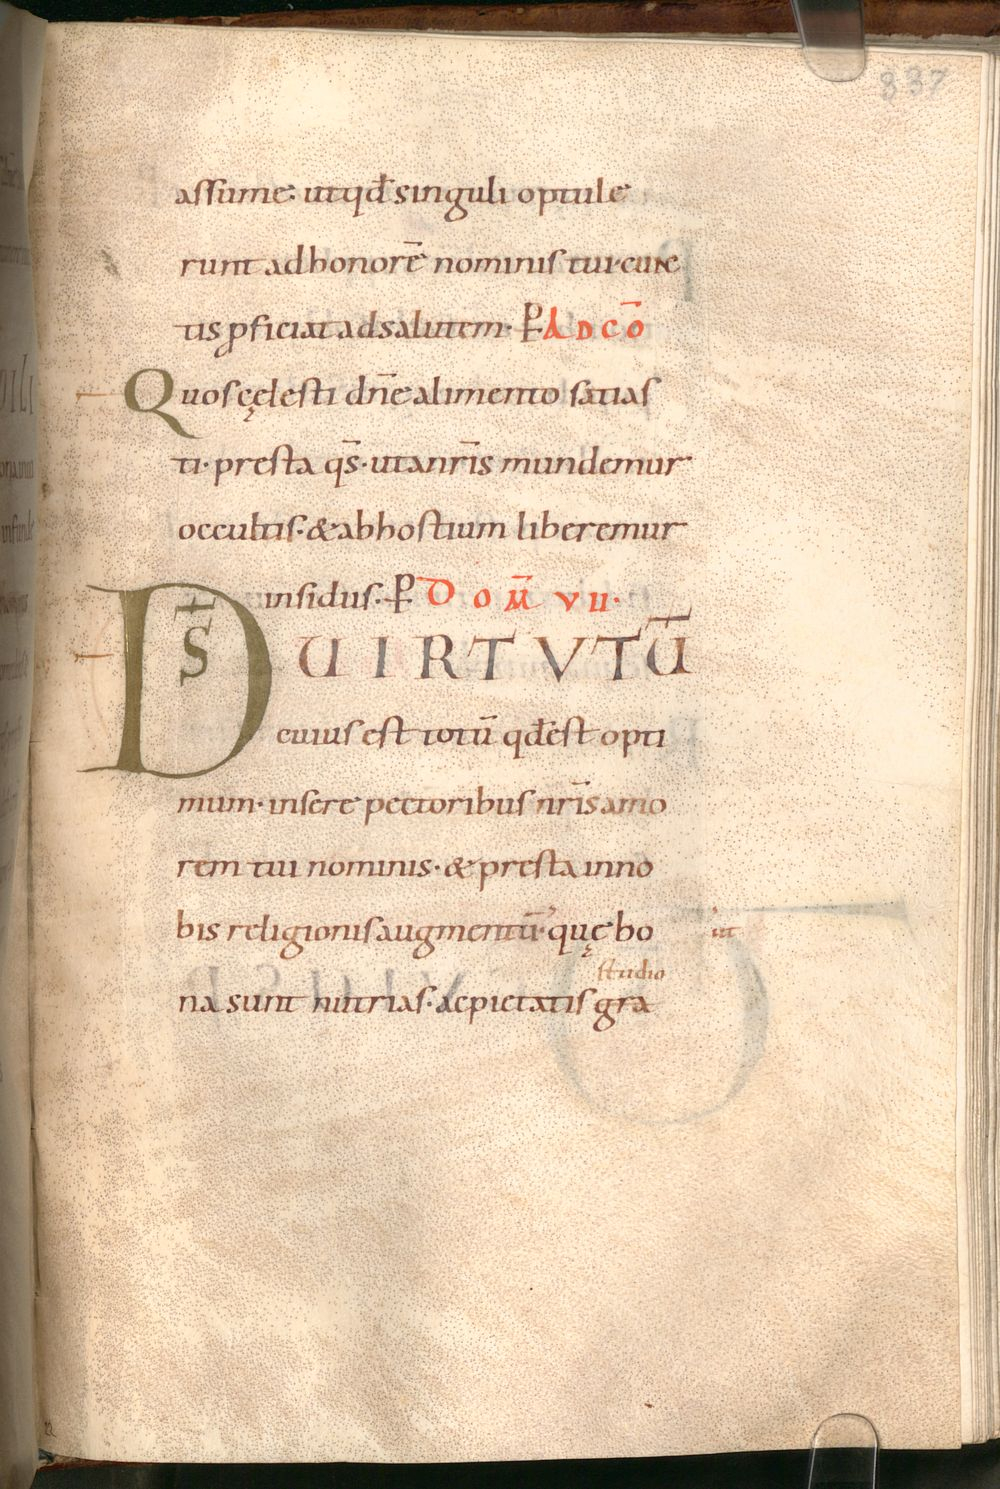 837
assume· utqđ singuli optule
runt ad honorē nominis tui· cunc
tis ꝓficiat ad salutem· P̱ AD CŌ
Quos cęlesti dn̄e alimento satias
ti· presta qs̄· ut a nr̄is mundemur
occultis· & ab hostium liberemur
insidiis· P̱ DOM̄ VII·
D̄S UIRTUTŪ
cuius est totū qđ est opti
mum· insere pectoribus nr̄is amo
rem tui nominis· & presta in no
bis religionis augmentū· quę bo ut
studio
na sunt nutrias· ac pietatis gra